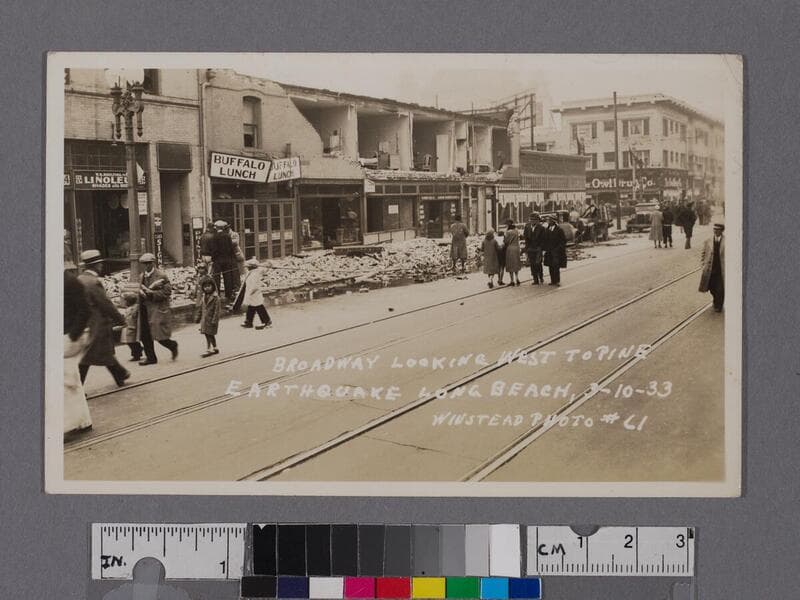 BUFFALO LUNCH
BUFFALO LUNCH
LINOLEUM
SHADES
Owl Drug Co.
BROADWAY LOOKING WEST TO PINE
EARTHQUAKE LONG BEACH, 3-10-33
WINSTEAD PHOTO #61
IN.
1
CM
1
2
3